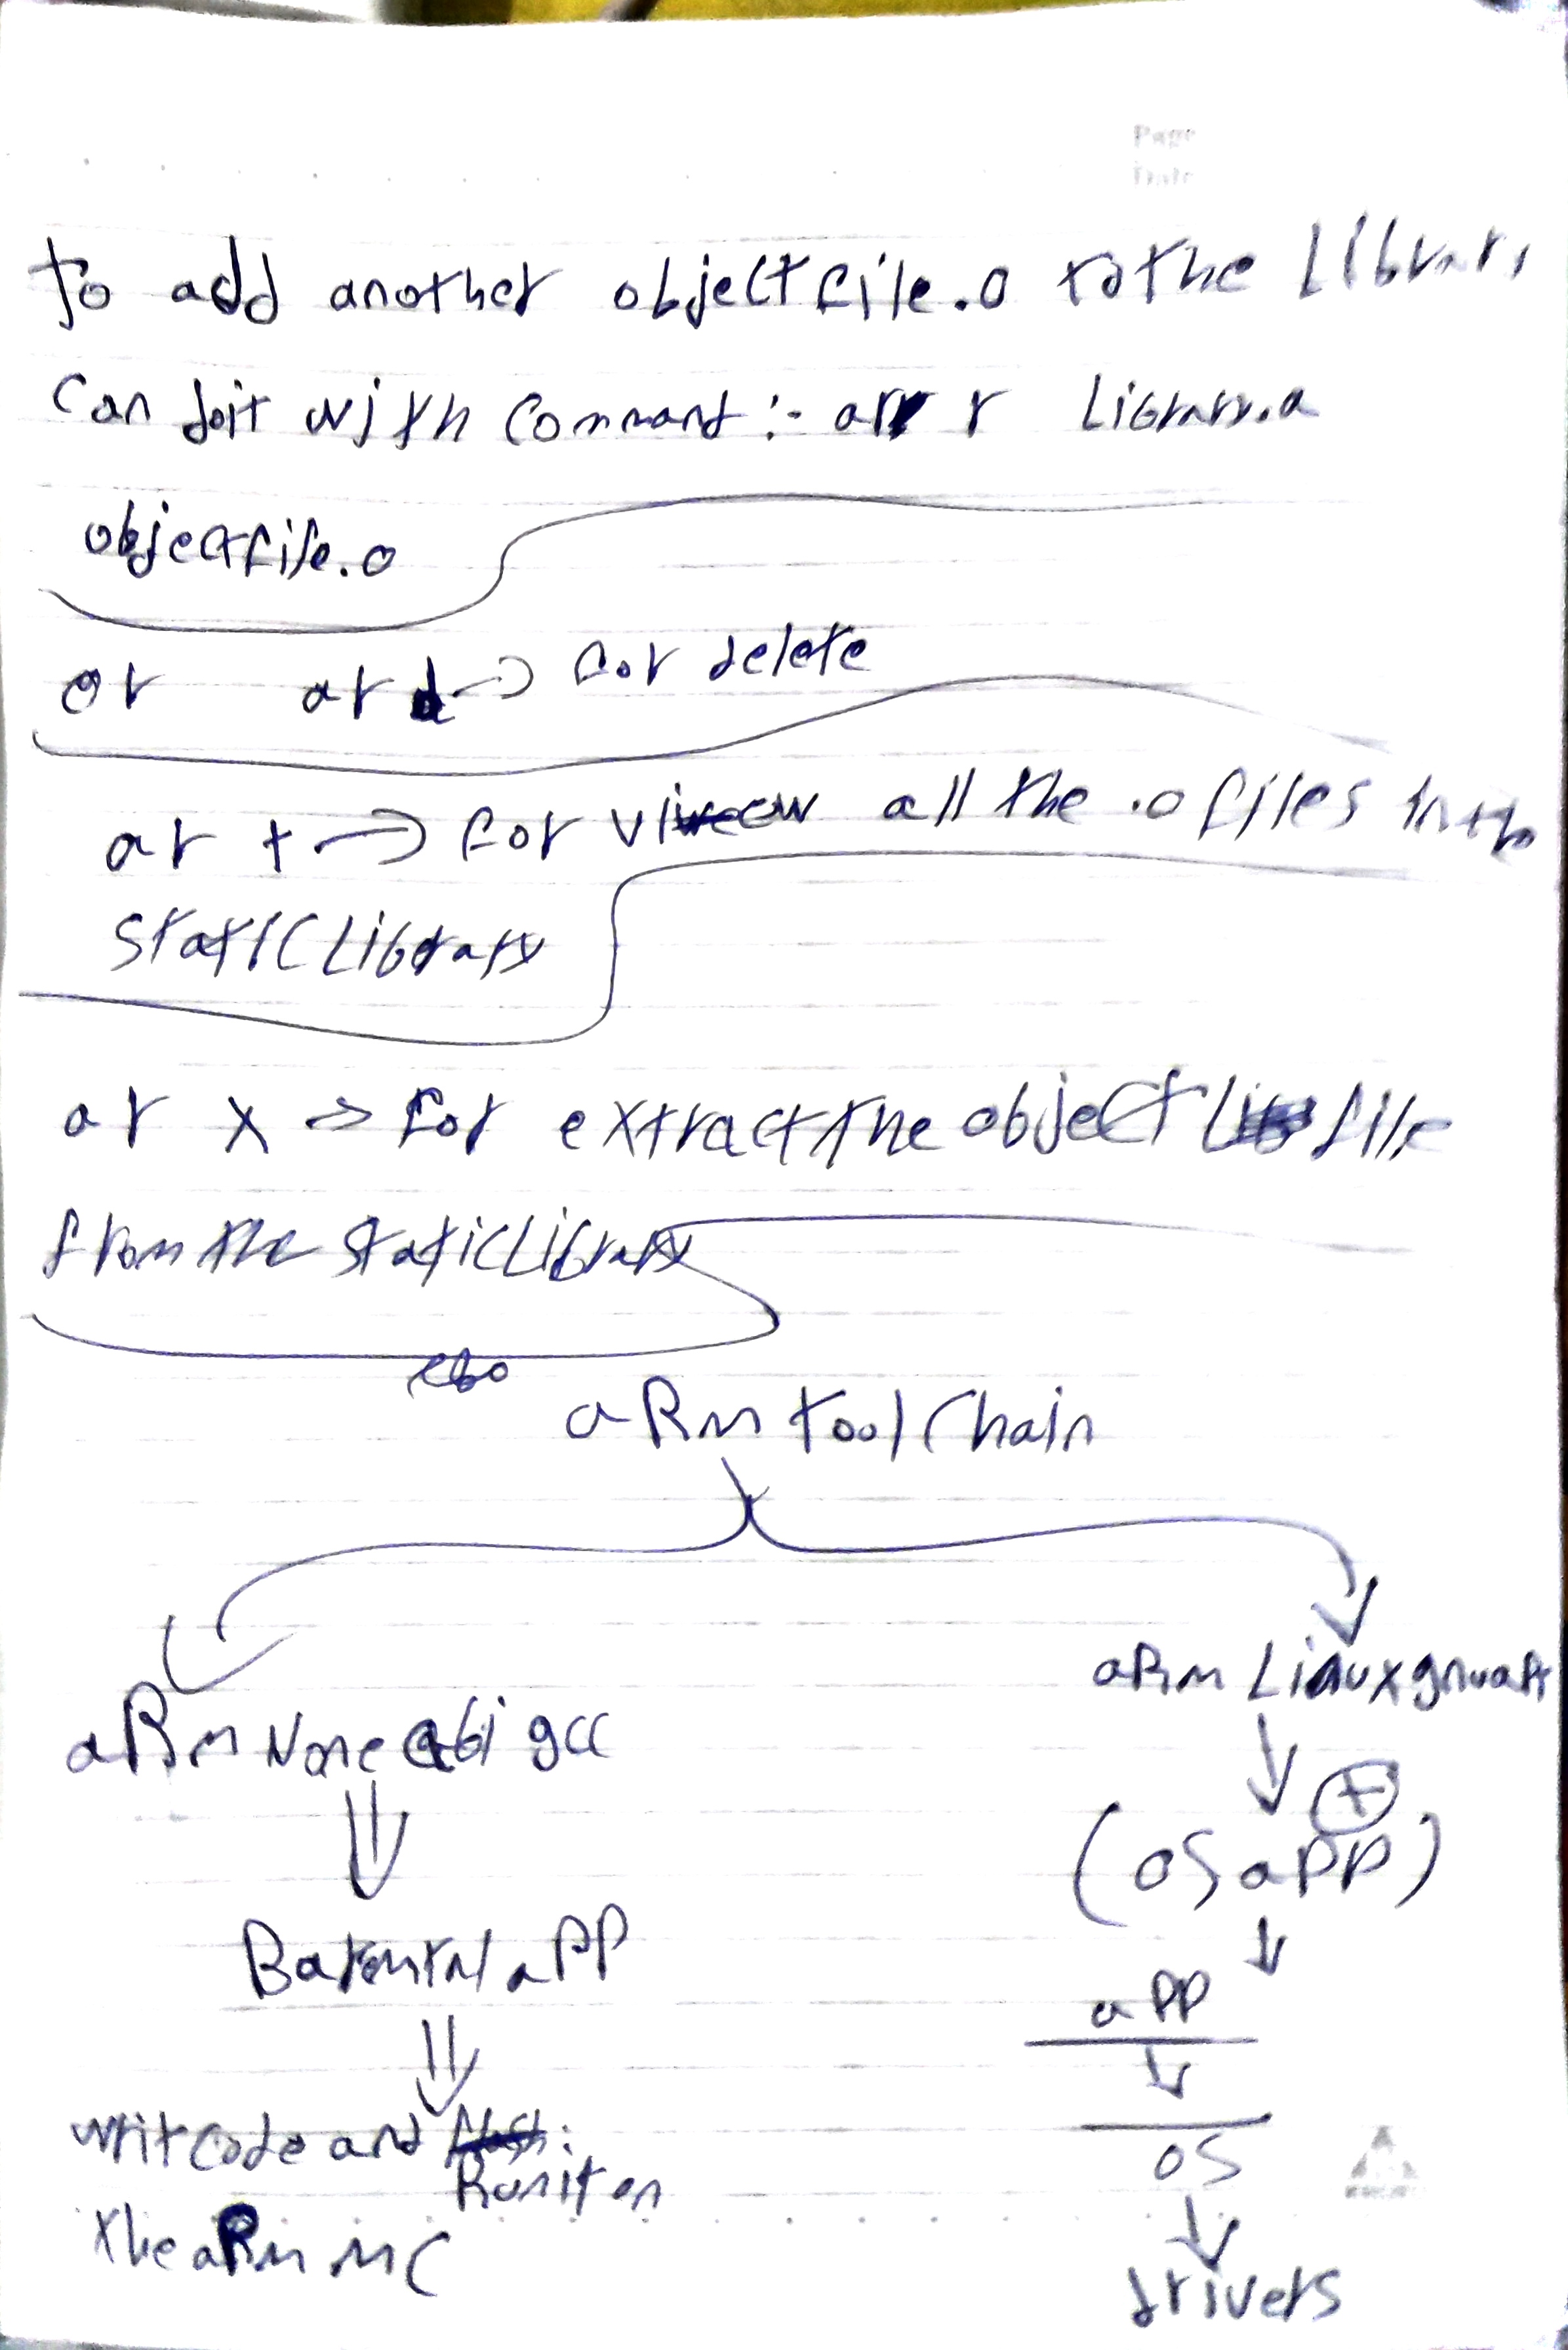 Page
Date
to add another objectfile.o to the Librar
can doit with Command :- ar r Library.a
objectfile.o
or ar d -> for delete
ar t -> for view all the .o files in the
static Library
ar x => for extract the object file
from the static Library
aRm toolchain
aRm Linuxgnuab
aRm None abi gcc
+
(OS app)
Baremtal app
app
writ code and
OS
Runit on
the aRm MC
drivers